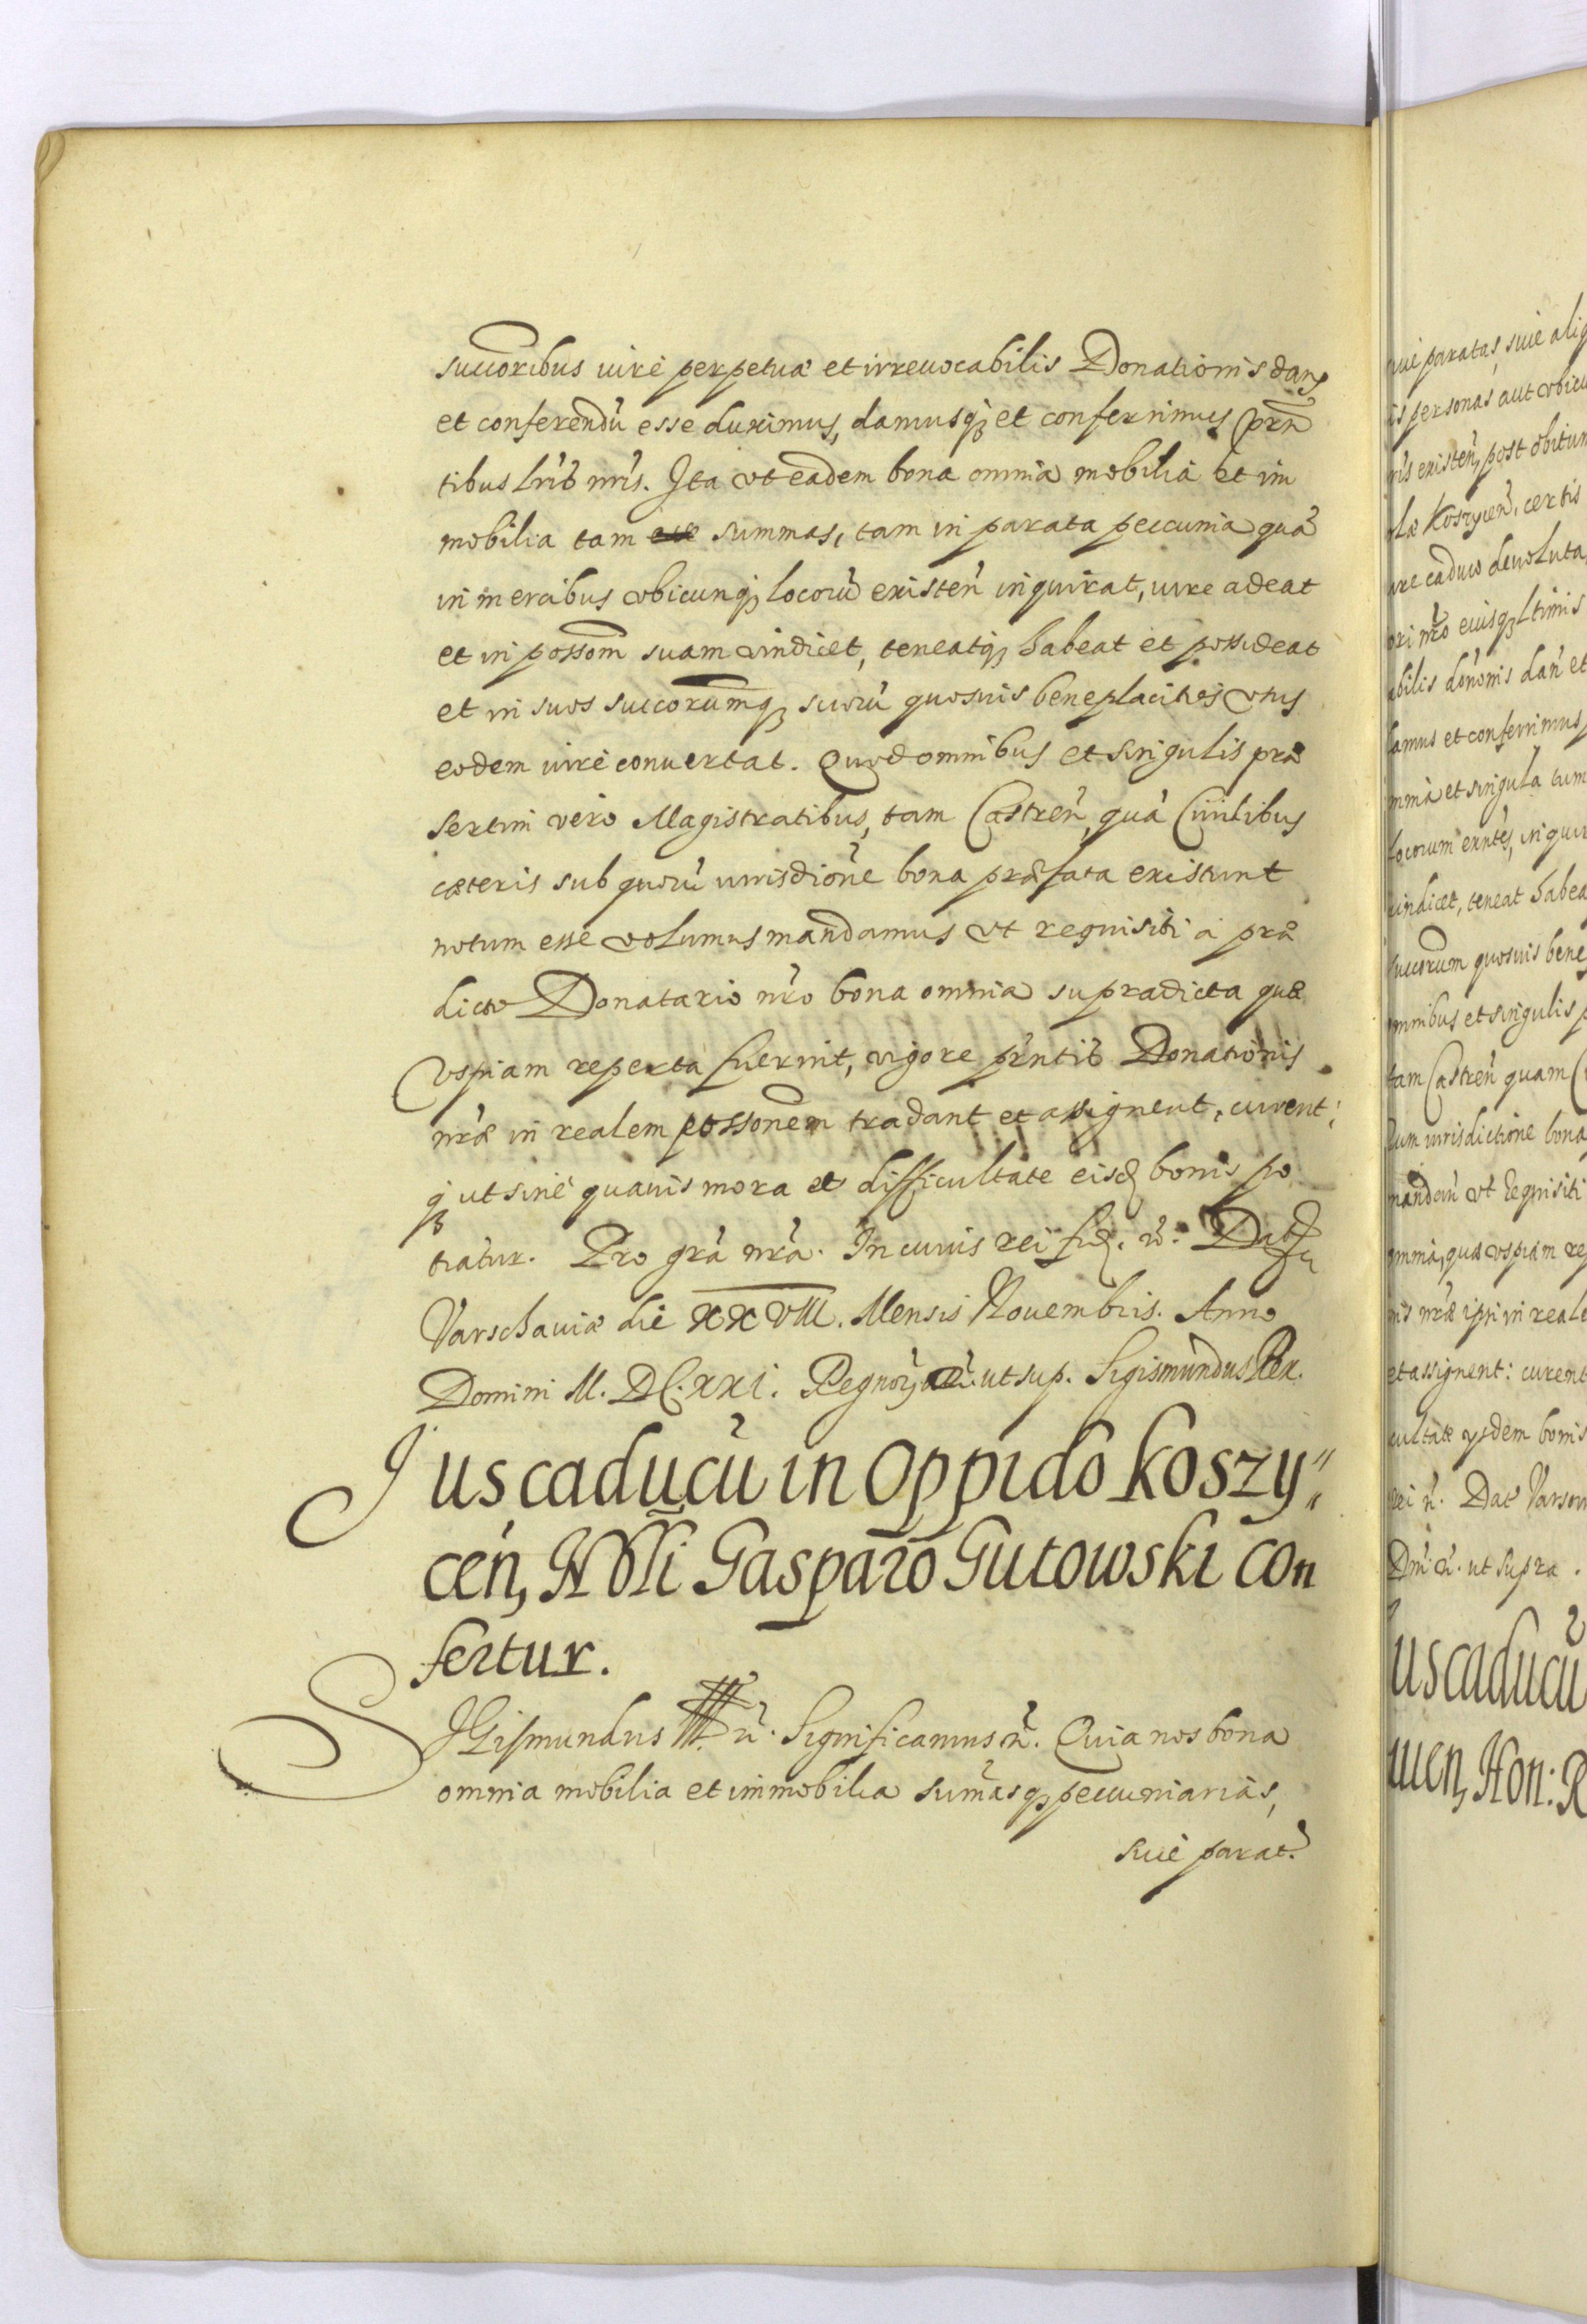 succoribus iure perpetuæ et irreuocabilis Donationis dan̄
et conferendū esse duximus, damusq; et conferrimus prn̄
tibus lrīb nrīs. Ita vt eadem bona omnia mobilia et im
mobilia tam summas, tam in parata peccunia quā
in mercibus vbicunq; locorū existen̄ inquirat, iure adeat
et in possom̄ suam vindicet, teneatq; habeat et possideat
et in suos succorumq; suorū quosuis beneplacitos vsus
eodem iure conuertat. Quod omnibus et singulis præ
sertim vero Magistratibus, tam Castren̄, quā Ciuilibus
cæteris sub quorū iurisdione bona præfata existunt
notum esse volumus mandamus vt requisiti a præ
dicto Donatario nr̄o bona omnia supradicta quæ
vspiam reperta fuerint, vigore prn̄tib Donationis
nr̄æ in realem possonem tradant et assignent, curent;
q; ut sine quauis mora et difficultate eisd bonis po
tiatur. Pro grā nrā. In cuius rei fid. ñ. Dat
Varschauiæ die XXVIII. Mensis Nouembris. Anno
Domini M. DC. XXI. Regnor̄ ut sup. Sigismundus Rex.
Jus caducū in Oppido Koszy„
cen̄, Nobli Gasparo Gutowski con
fertur.
SIGismundus III. ñ. Significamus ñ. Quia nos bona
omnia mobilia et immobilia sum̄asq; peccuniarias,
siue parat.
siue paratas, siue aliq
is personas aut vbicu
ris existen̄, post obitum
Koszycen̄. certis
iure caduco deuoluta,
ori nr̄o eiusq; ltimis
abilis donōnis dan̄ et
damus et conferrimus
omnia et singula tum
locorum exn̄tes, inquir
vindicet, teneat habea
succorum quosuis bene
omnibus et singulis p
tam Castren̄ quam C
rum iurisdictione bona
mandan̄ vt requisiti
omnia, quæ vspiam rep
nis nr̄æ ipsi in reale
et assignent: curent
cultate ysdem bonis
rei ñ. Dat Varsou
Dni ñ. ut supra.
Jus caducū
cuien, Hon: R